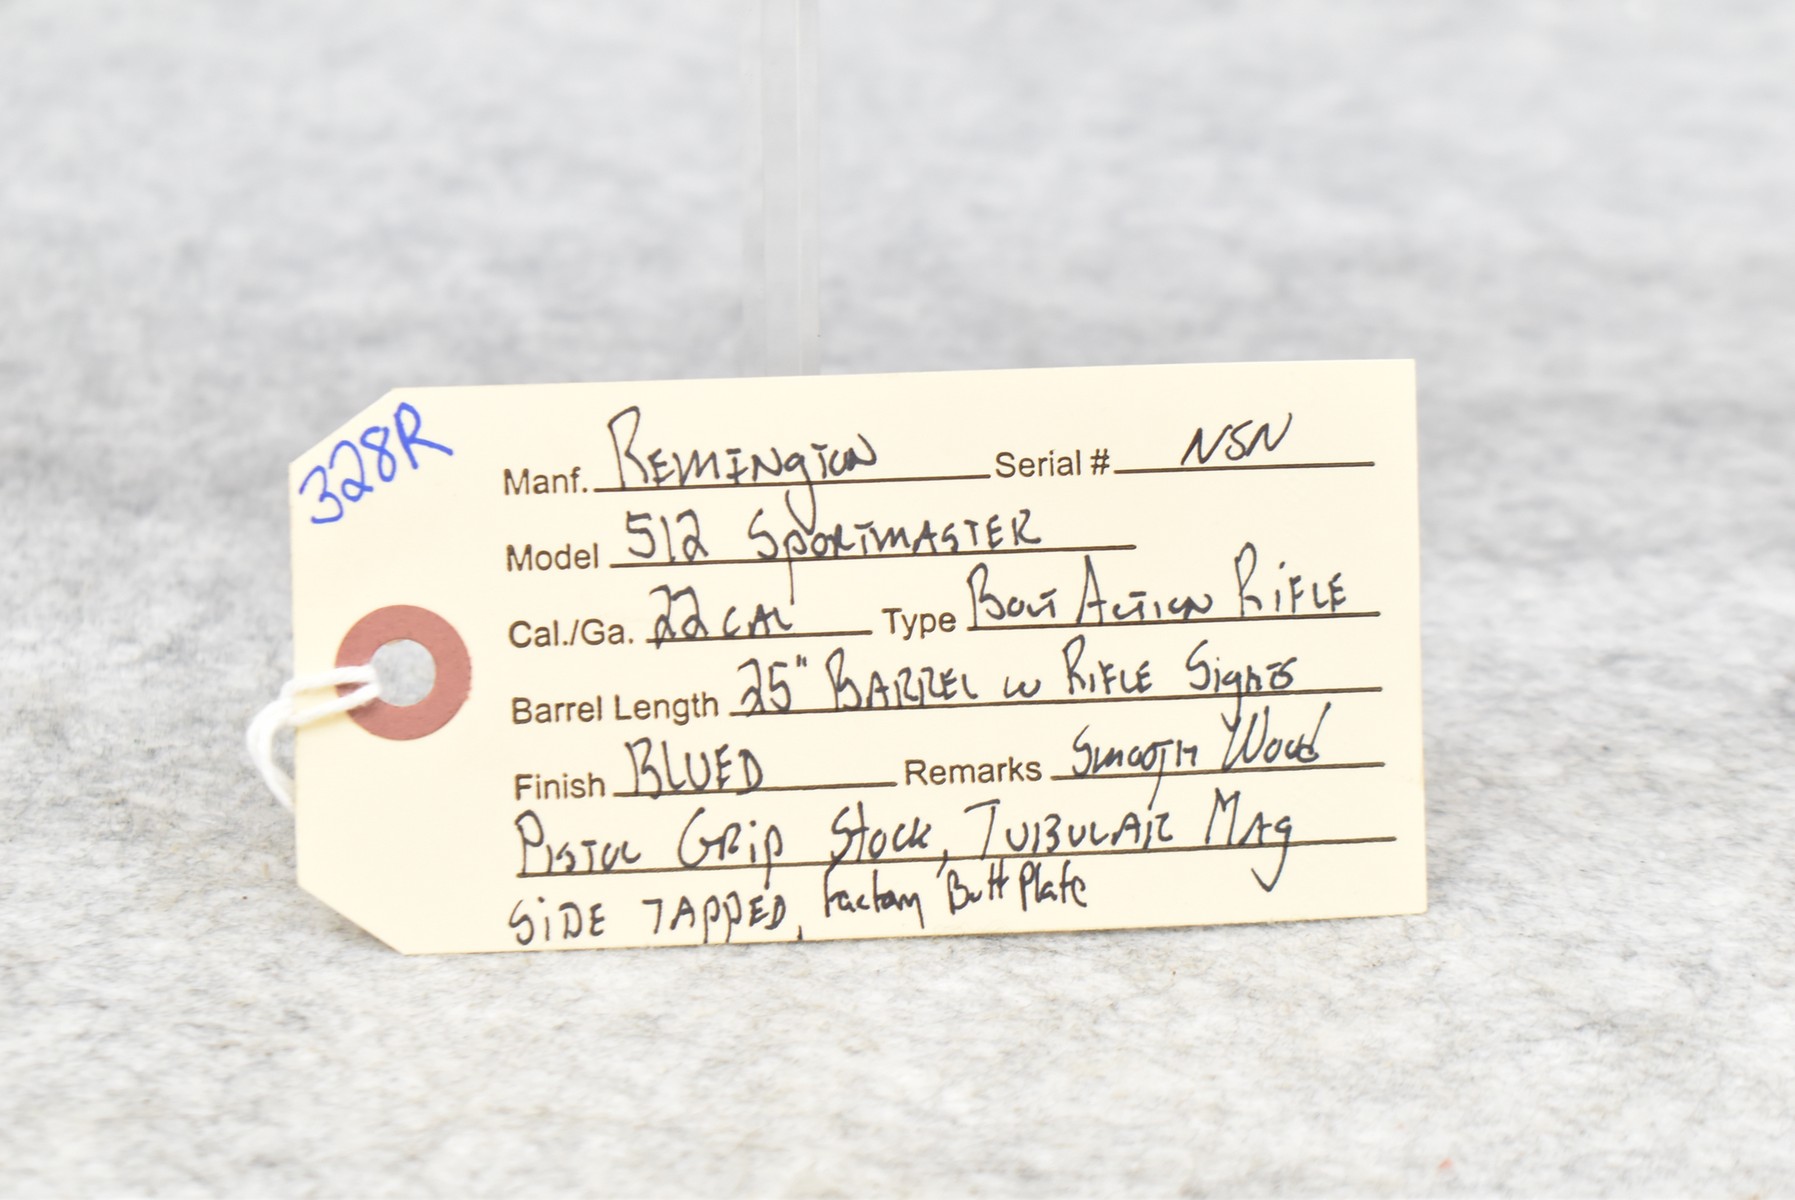 328R
Manf. Remington Serial # NSN
Model 512 Sportmaster
Cal./Ga. 22 cal Type Bolt Action Rifle
Barrel Length 25" Barrel w Rifle Sights
Finish Blued Remarks Smooth Wood
Pistol Grip Stock, Tubular Mag
Side Tapped, Factory Butt Plate